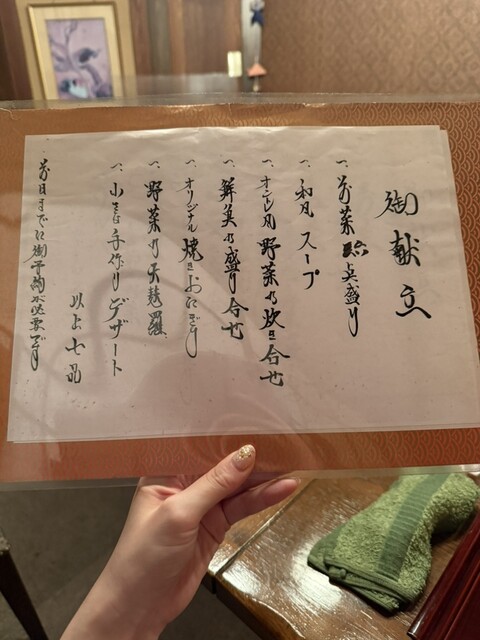 御献立
一、前菜 点盛り
一、和風 スープ
一、オランダ風 野菜の炊き合せ
一、鮮美の盛り合せ
一、オリジナル 焼きおにぎり
一、野菜の天麩羅
一、小さな手作りデザート
以上七品
前日までに御予約が必要です